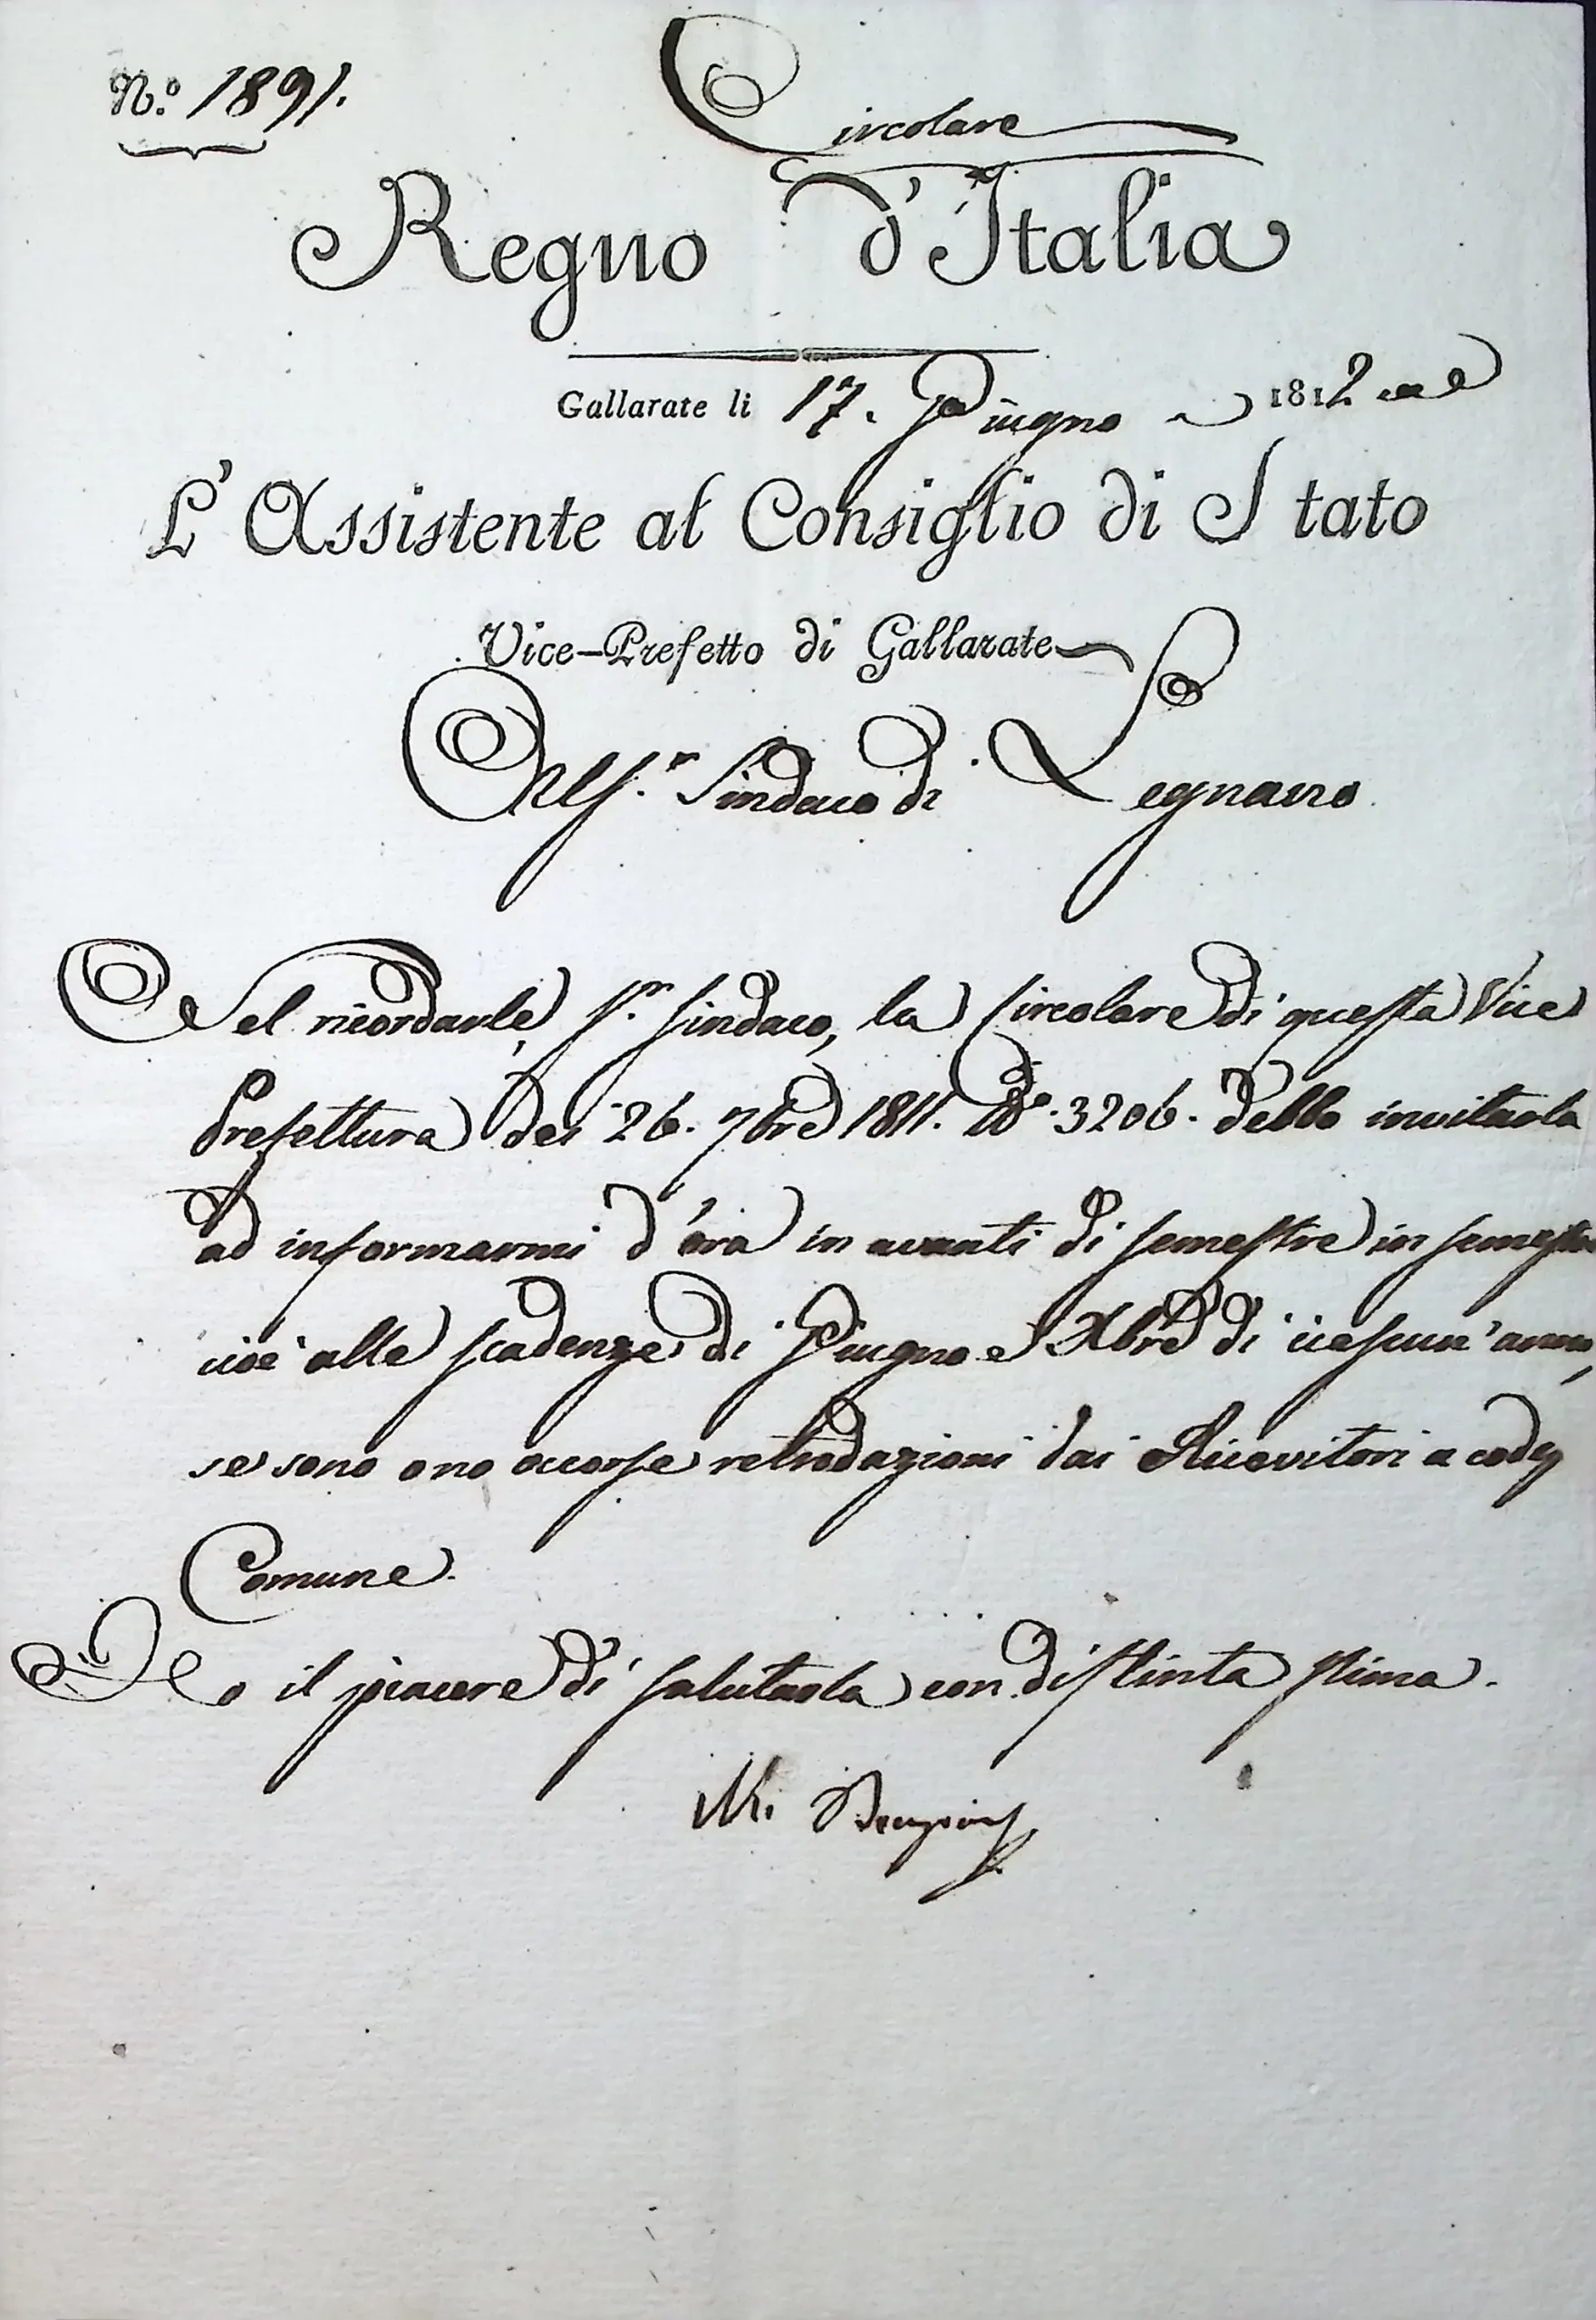 N.º 1891.
Circolare
Regno d'Italia
Gallarate li 17. Giugno 1812
L'Assistente al Consiglio di Stato
Vice-Prefetto di Gallarate
Al S.r Sindaco di Legnano
Nel ricordarle, S.r Sindaco, la Circolare di questa Vice
Prefettura dei 26. 7bre 1811. N.º 3206. debbo invitarla
ad informarmi d'ora in avanti di semestre in semestre
cioè alle scadenze di Giugno e Xbre di ciescun'anno,
se sono o no occorse retrodazioni dai Ricevitori a codª
Comune.
Ho il piacere di salutarla con distinta stima.